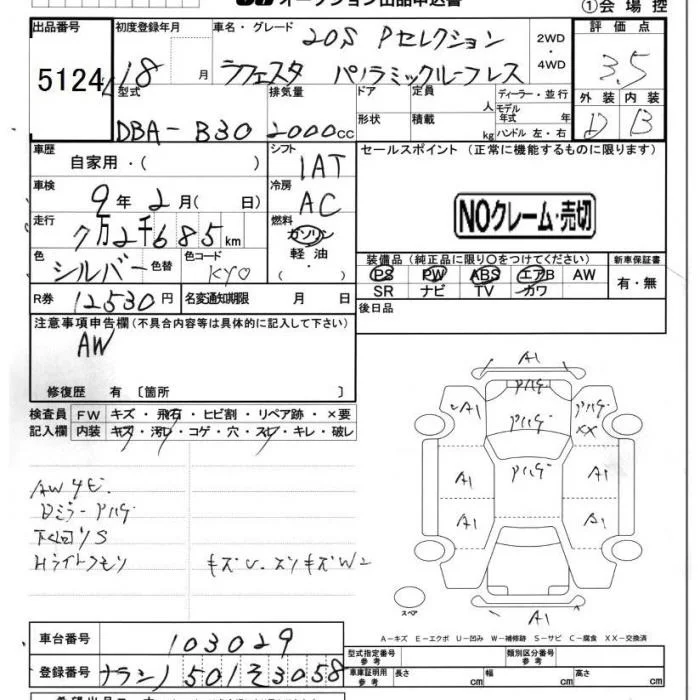 オークション出品申込書
①会場控
出品番号 5124
初度登録年月 18 月
車名・グレード 20S Pセレクション
ラフェスタ パノラミックルーフレス
2WD ・ 4WD
評価点 3.5
外装 D 内装 B
型式 DBA-B30
排気量 2000cc
ドア 形状
定員 人
積載 kg
ディーラー・並行
モデル年式 年
ハンドル 左・右
車歴 自家用・( )
シフト IAT
車検 9年2月( 日)
冷房 AC
走行 7万2千685km
燃料 ガソリン・軽油・( )
色 シルバー 色替
色コード KY0
R券 12530円
名変通知期限 月 日
セールスポイント(正常に機能するものに限ります)
NOクレーム・売切
装備品(純正品に限り○をつけてください)
PS PW ABS エアB AW
SR ナビ TV カワ
新車保証書 有・無
後日品
注意事項申告欄(不具合内容等は具体的に記入して下さい)
AW
修復歴 有〔箇所 〕
検査員記入欄
FW キズ・飛石・ヒビ割・リペア跡・×要
内装 キズ・汚レ・コゲ・穴・スレ・キレ・破レ
A1
アハゲ
A1 アハゲ アハゲ
XX
アハゲ
A1 A1
A1 A1
スペア
A1
AWキズ
ドミラーアハゲ
下回りS
Hライトクモリ
キズU.スリキズW2
A-キズ E-エクボ U-凹み W-補修跡 S-サビ C-腐食 XX-交換済
車台番号 103029
登録番号 ナラシノ501そ3058
型式指定番号 参考
類別区分番号 参考
車庫証明用 参考
長さ cm 幅 cm 高さ cm